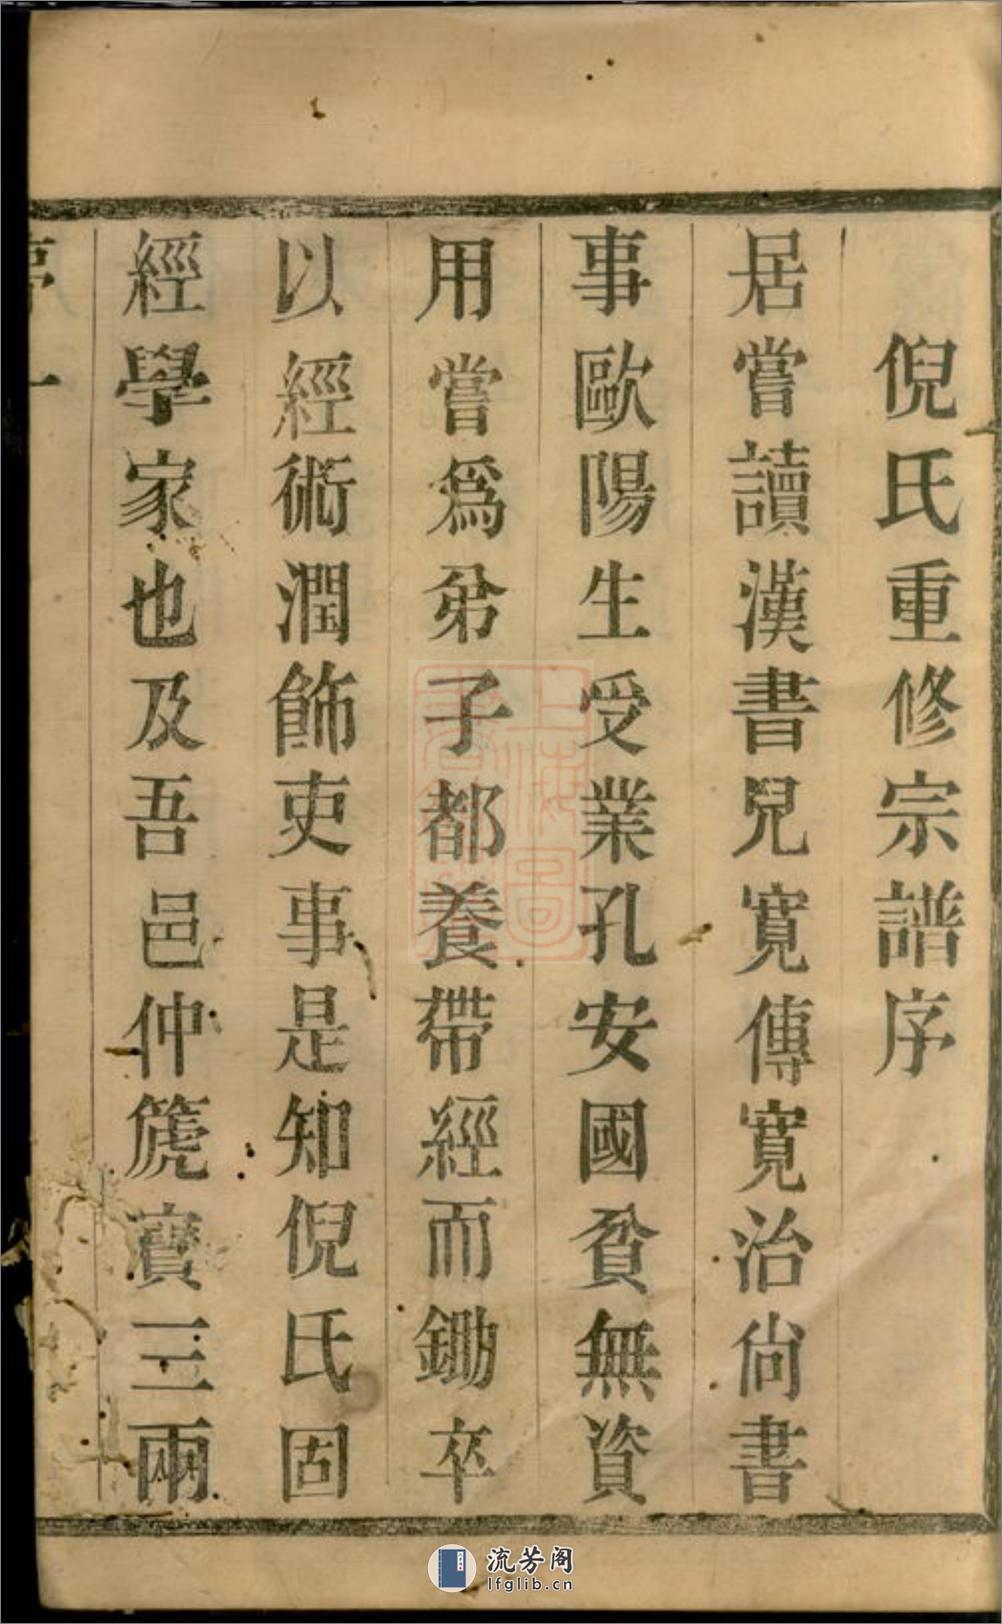 倪氏重修宗譜序
居嘗讀漢書兒寬傳寬治尙書
事歐陽生受業孔安國貧無資
用嘗爲弟子都養帶經而鋤卒
以經術潤飾吏事是知倪氏固
經學家也及吾邑仲篪寶三兩
序 一
流芳阁
lfglib.cn